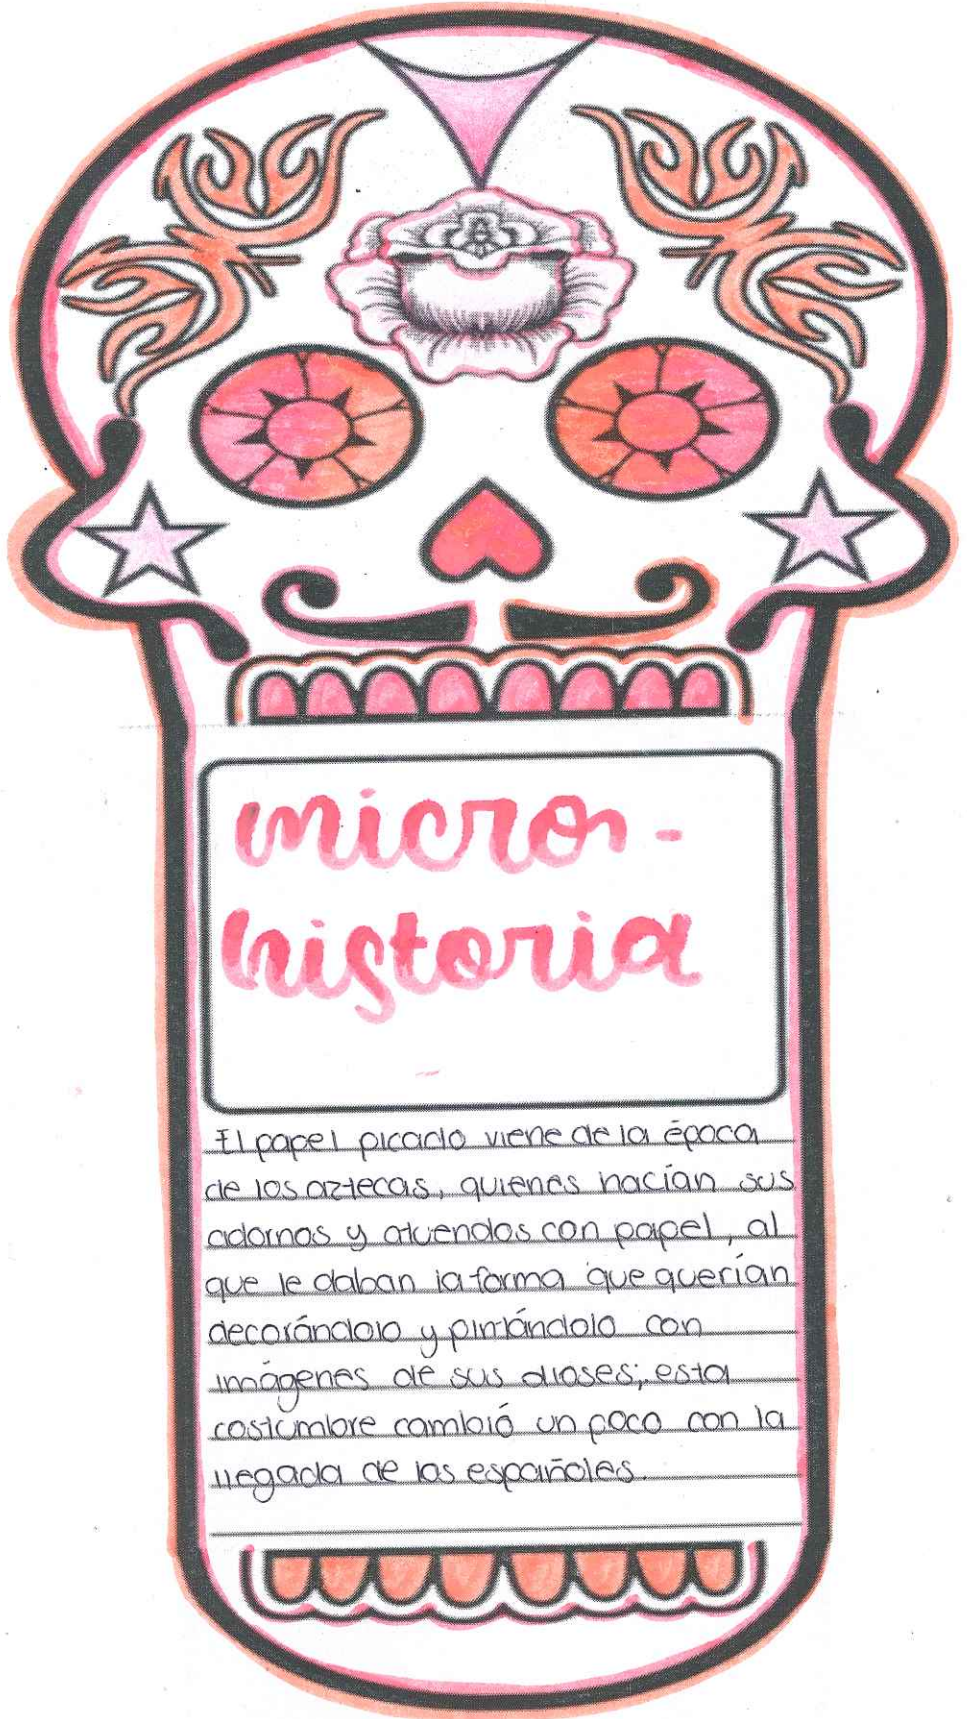 micro-
historia
El papel picado viene de la época
de los aztecas, quienes hacían sus
adornos y atuendos con papel, al
que le daban la forma que querían
decorándolo y pintándolo con
imágenes de sus dioses; esta
costumbre cambió un poco con la
llegada de los españoles.